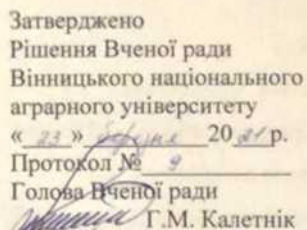 Затверджено
Рішення Вченої ради
Вінницького національного
аграрного університету
«23» березня 2021 р.
Протокол № 9
Голова Вченої ради
Г.М. Калетнік